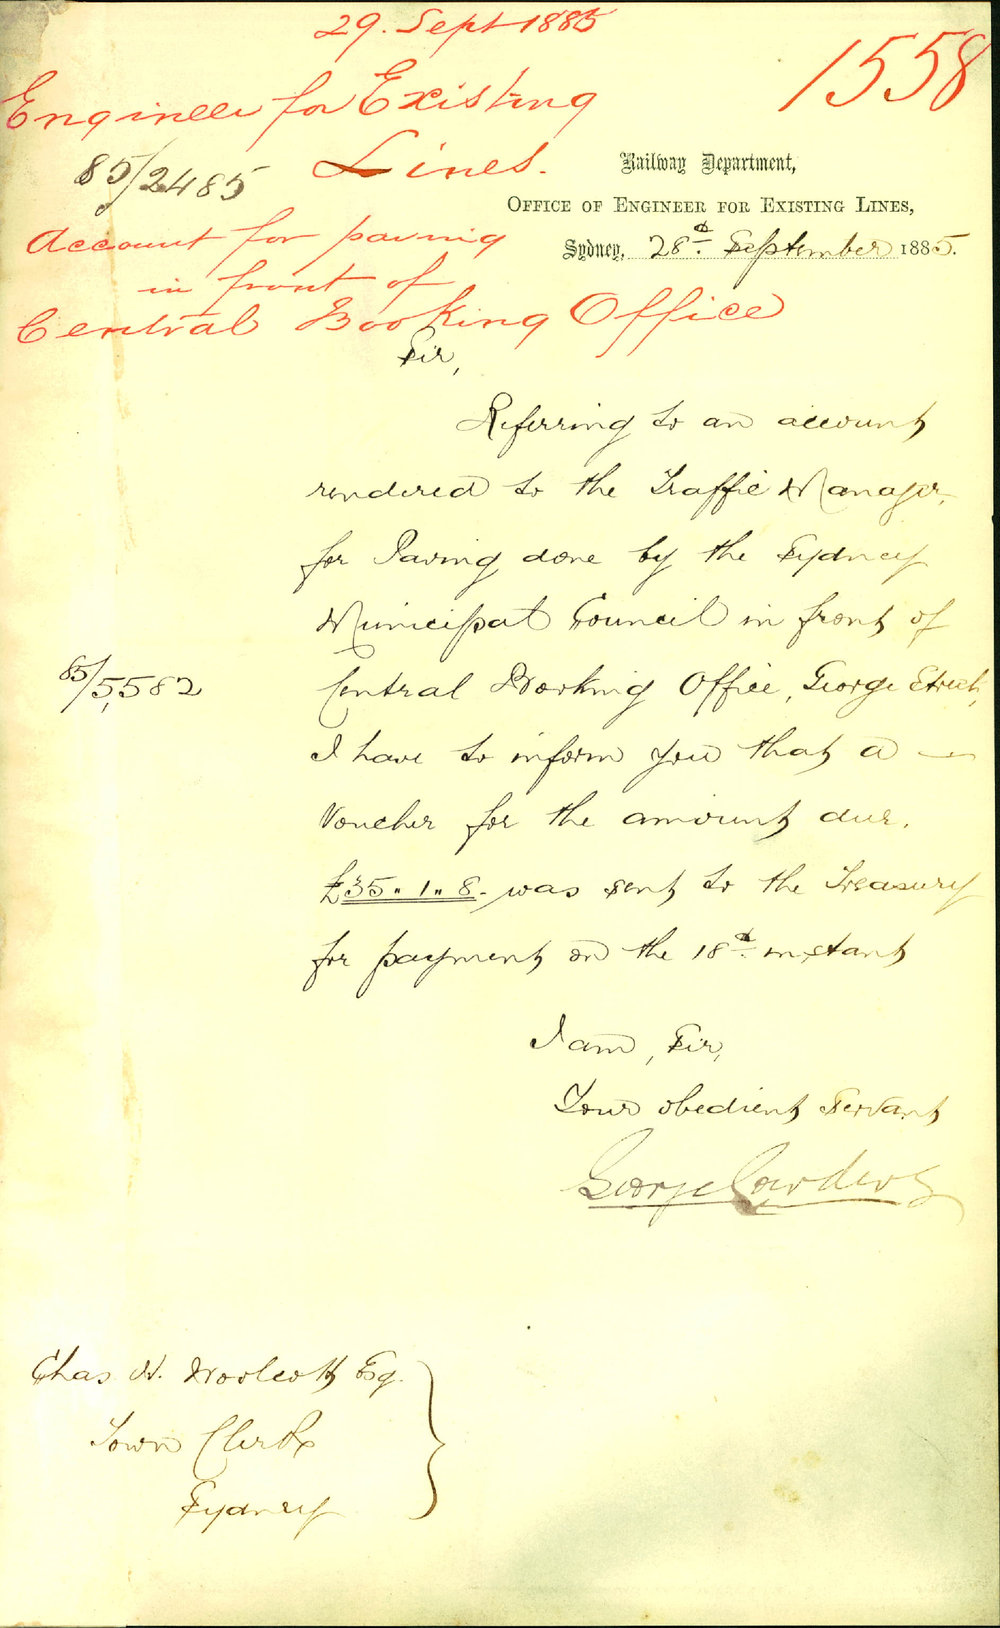 29. Sept 1885
1558
Engineer for Existing
Lines.
85/2485
Account for paving
in front of
Central Booking Office
Railway Department,
OFFICE OF ENGINEER FOR EXISTING LINES,
Sydney, 28th September 1885.
Sir,
Referring to an account
rendered to the Traffic Manager,
for Paving done by the Sydney
Municipal Council in front of
85/5582
Central Booking Office, George Street,
I have to inform you that a
Voucher for the amount due,
£35.. 1.. 8. was sent to the Treasury
for payment on the 18th instant
I am, Sir,
Your obedient Servant
George Cowdery
Chas H. Woolcott Esq.
Town Clerk
Sydney